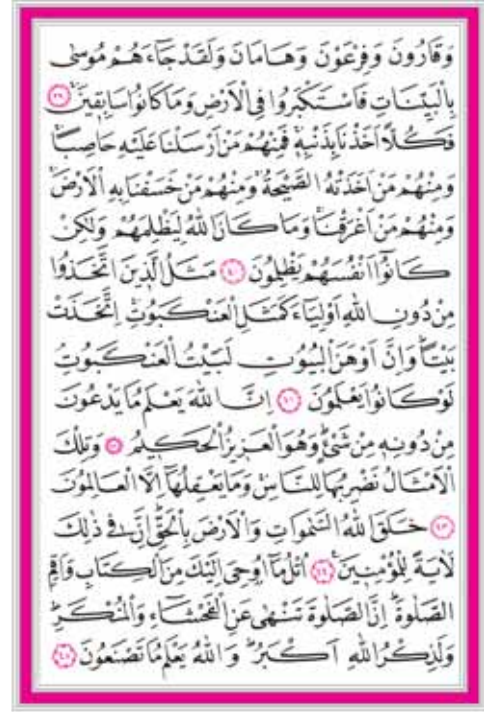 وَقَارُونَ وَفِرْعَوْنَ وَهَامَانَ وَلَقَدْ جَٓاءَهُمْ مُوسٰى
بِالْبَيِّنَاتِ فَاسْتَكْبَرُوا فِى الْاَرْضِ وَمَا كَانُوا سَابِقٖينَۚ ﴿٣٩﴾
فَكُلًّا اَخَذْنَا بِذَنْبِهٖۚ فَمِنْهُمْ مَنْ اَرْسَلْنَا عَلَيْهِ حَاصِبًاۚ
وَمِنْهُمْ مَنْ اَخَذَتْهُ الصَّيْحَةُۚ وَمِنْهُمْ مَنْ خَسَفْنَا بِهِ الْاَرْضَۚ
وَمِنْهُمْ مَنْ اَغْرَقْنَاۚ وَمَا كَانَ اللّٰهُ لِيَظْلِمَهُمْ وَلٰكِنْ
كَانُٓوا اَنْفُسَهُمْ يَظْلِمُونَ ﴿٤٠﴾ مَثَلُ الَّذٖينَ اتَّخَذُوا
مِنْ دُونِ اللّٰهِ اَوْلِيَٓاءَ كَمَثَلِ الْعَنْكَبُوتِۚ اِتَّخَذَتْ
بَيْتًاۜ وَاِنَّ اَوْهَنَ الْبُيُوتِ لَبَيْتُ الْعَنْكَبُوتِۢ
لَوْ كَانُوا يَعْلَمُونَ ﴿٤١﴾ اِنَّ اللّٰهَ يَعْلَمُ مَا يَدْعُونَ
مِنْ دُونِهٖ مِنْ شَيْءٍۜ وَهُوَ الْعَزٖيزُ الْحَكٖيمُ ﴿٤٢﴾ وَتِلْكَ
الْاَمْثَالُ نَضْرِبُهَا لِلنَّاسِۚ وَمَا يَعْقِلُهَٓا اِلَّا الْعَالِمُونَ
﴿٤٣﴾ خَلَقَ اللّٰهُ السَّمٰوَاتِ وَالْاَرْضَ بِالْحَقِّۜ اِنَّ فٖى ذٰلِكَ
لَاٰيَةً لِلْمُؤْمِنٖينَ۟ ﴿٤٤﴾ اُتْلُ مَٓا اُوحِىَ اِلَيْكَ مِنَ الْكِتَابِ وَاَقِمِ
الصَّلٰوةَۜ اِنَّ الصَّلٰوةَ تَنْهٰى عَنِ الْفَحْشَٓاءِ وَالْمُنْكَرِۜ
وَلَذِكْرُ اللّٰهِ اَكْبَرُۜ وَاللّٰهُ يَعْلَمُ مَا تَصْنَعُونَ ﴿٤٥﴾